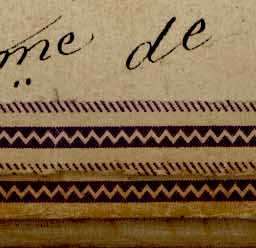 me de